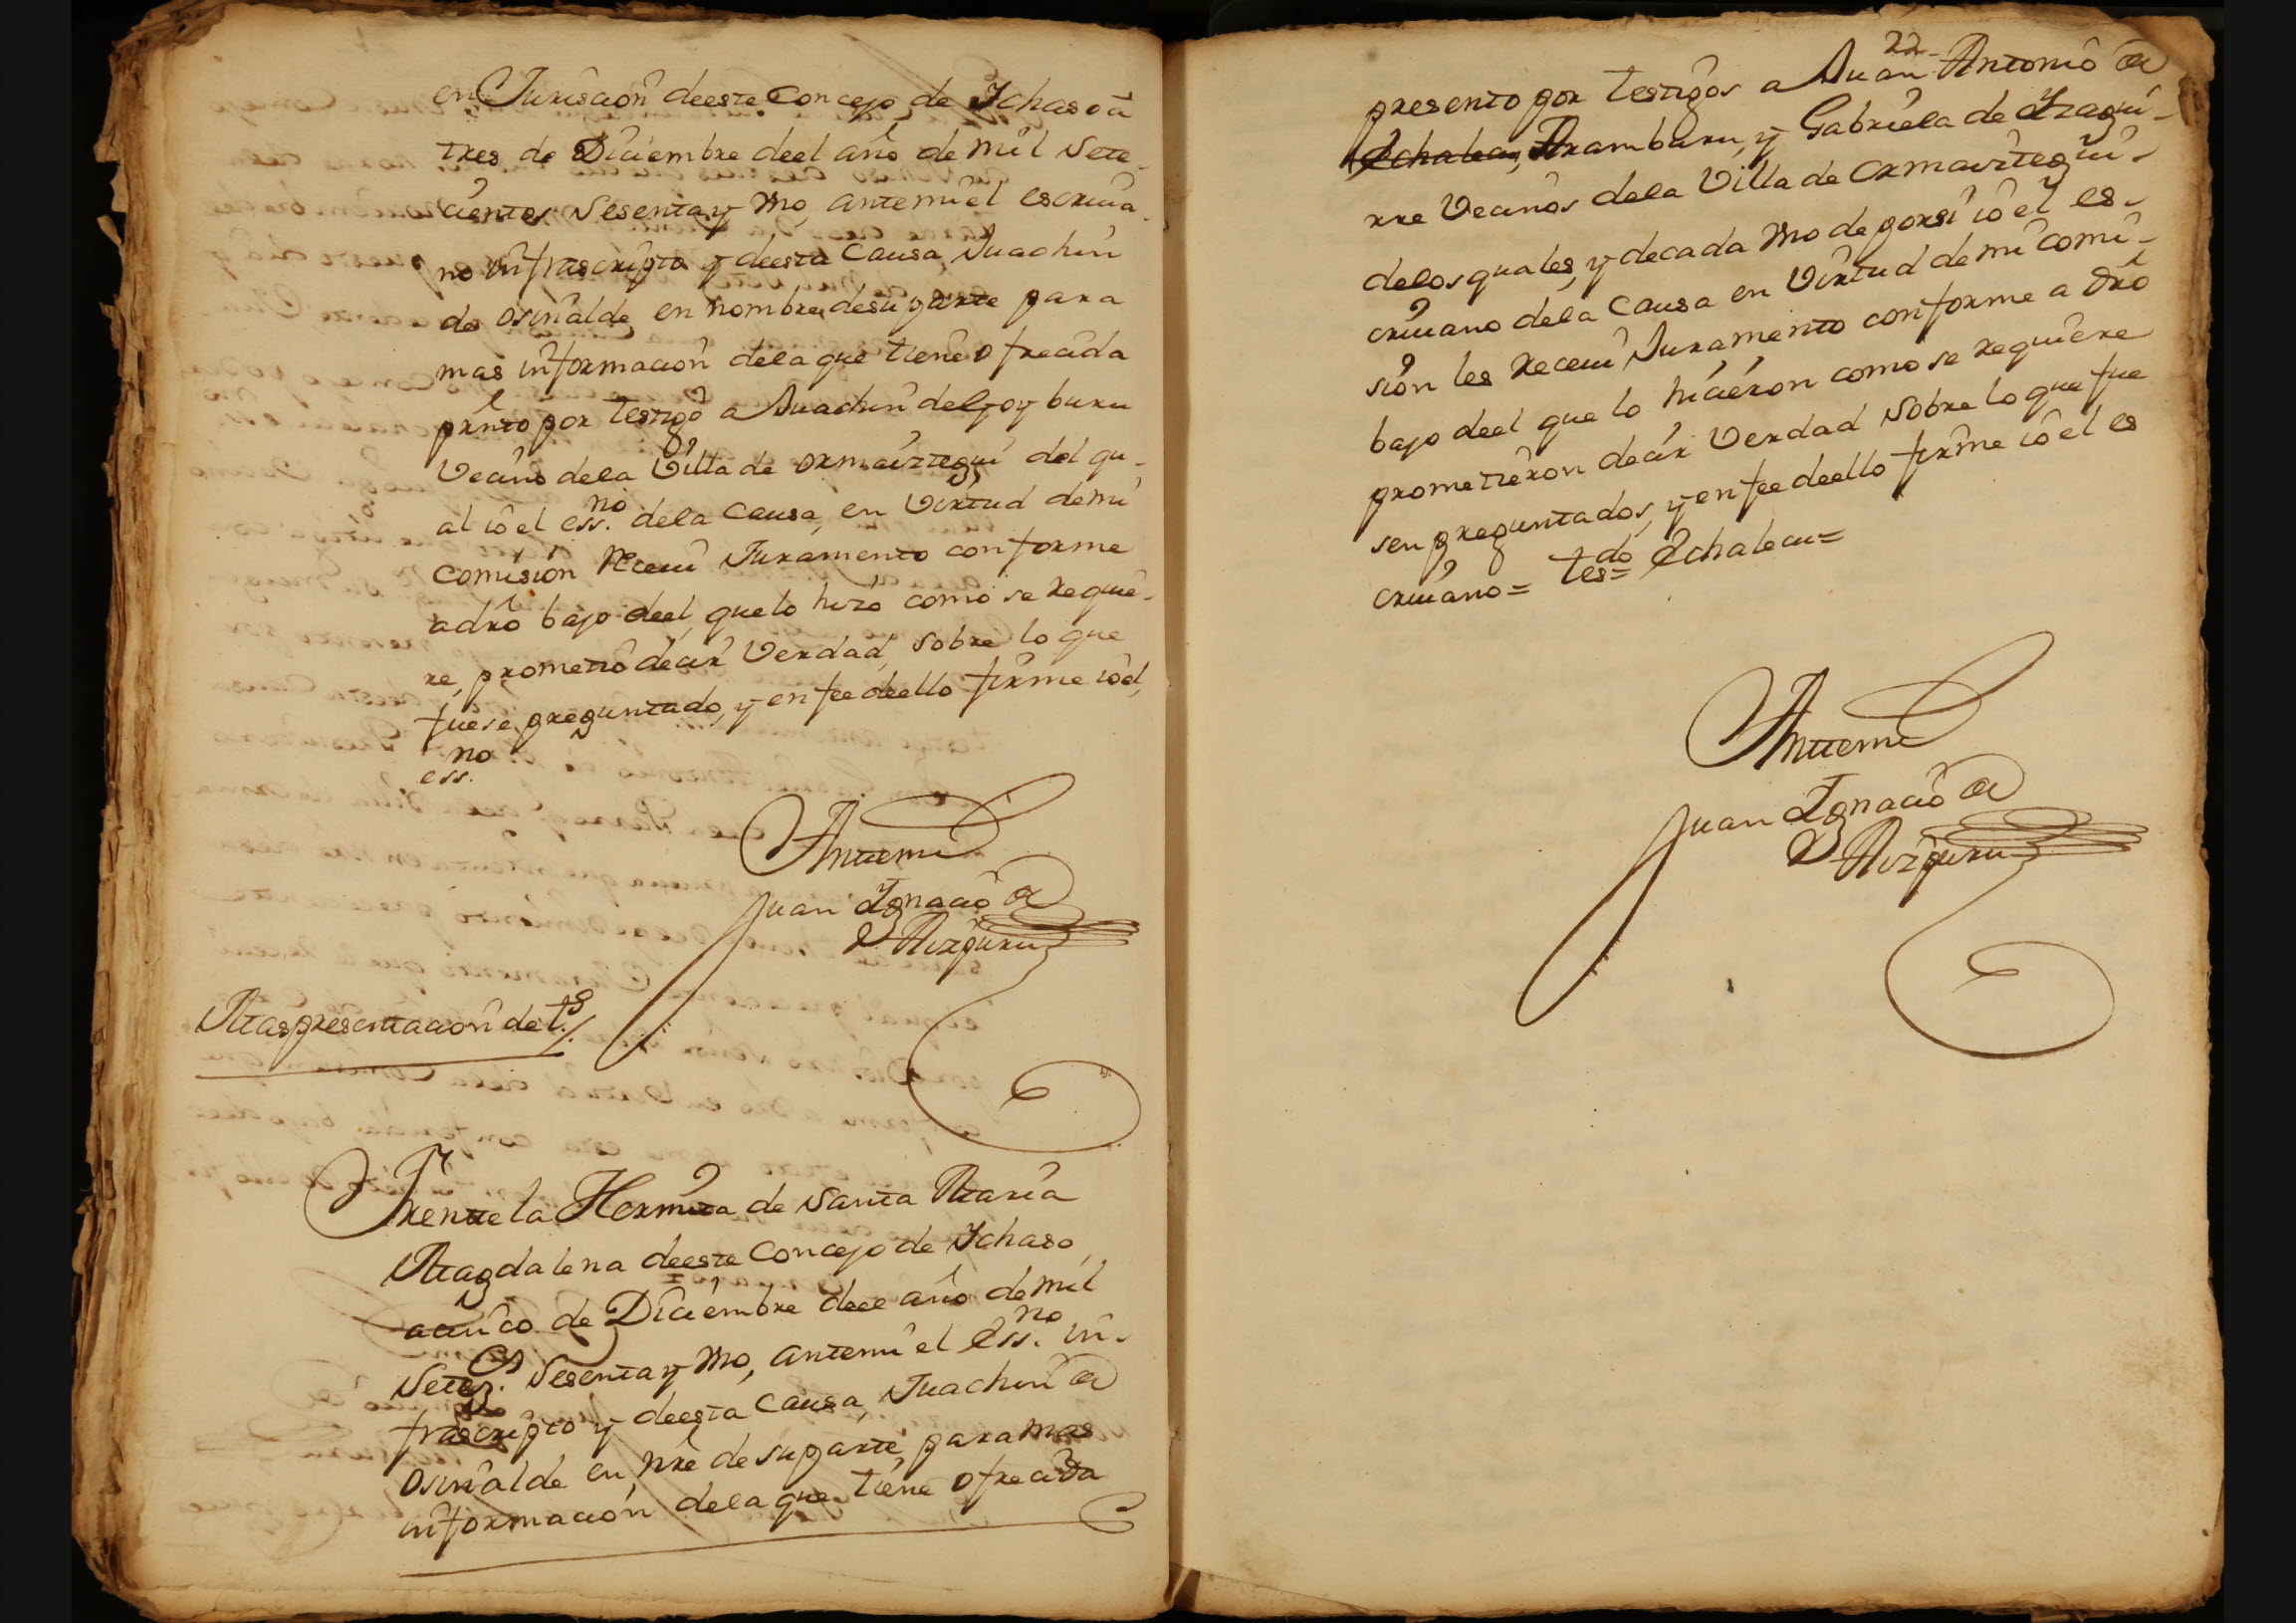 en Jurisción deeste Concejo de Ychaso a
tres de Diciembre deel año de mil Sete-
cientos Sesenta y uno, ante mi el escriua-
no infrascripto y deesta Causa, Juachin
de Osinalde, en nombre de su parte para
mas información de la que tiene ofrecida
preto por testigo a Juachin de
Vecino de la Villa de Ormaiztegui del qu-
al io el essno. de la Causa, en Virtud de mi
Comisión Receui Juramento conforme
a dro bajo deel, que lo hizo como se requie-
re, prometió decir Verdad, sobre lo que
fuese preguntado, y en fee deello firme io el
essno.
Ante mi
Juan Ygnacio de
Aizpuru
Mas presentacion de ts./.
Frente la Hermita de Santa Maria
Magdalena deeste Concejo de Ychaso
a cinco de Diciembre deel año de mil
Setezs. Sesenta y uno, ante mi el Essno. in-
frascripto y deesta Causa, Juachin de
Osinalde en nre de su parte, para mas
información de la que tiene ofrecida
22
presento por testigos a Juan Antonio de
Echalecu, Aramburu, y Gabriela de Yzagui-
rre Vecinos de la Villa de Ormaiztegui-
de los quales, y de cada uno de por si io el es-
criuano de la Causa en Virtud de mi comi-
sión les Receui Juramento conforme a dro
bajo deel que lo hicieron como se requiere
prometieron decir Verdad sobre lo que fue
sen preguntados, y en fee deello firme io el es
criuano = tesdo = Echalecu =
Ante mi
Juan Ygnacio de
Aizpuru